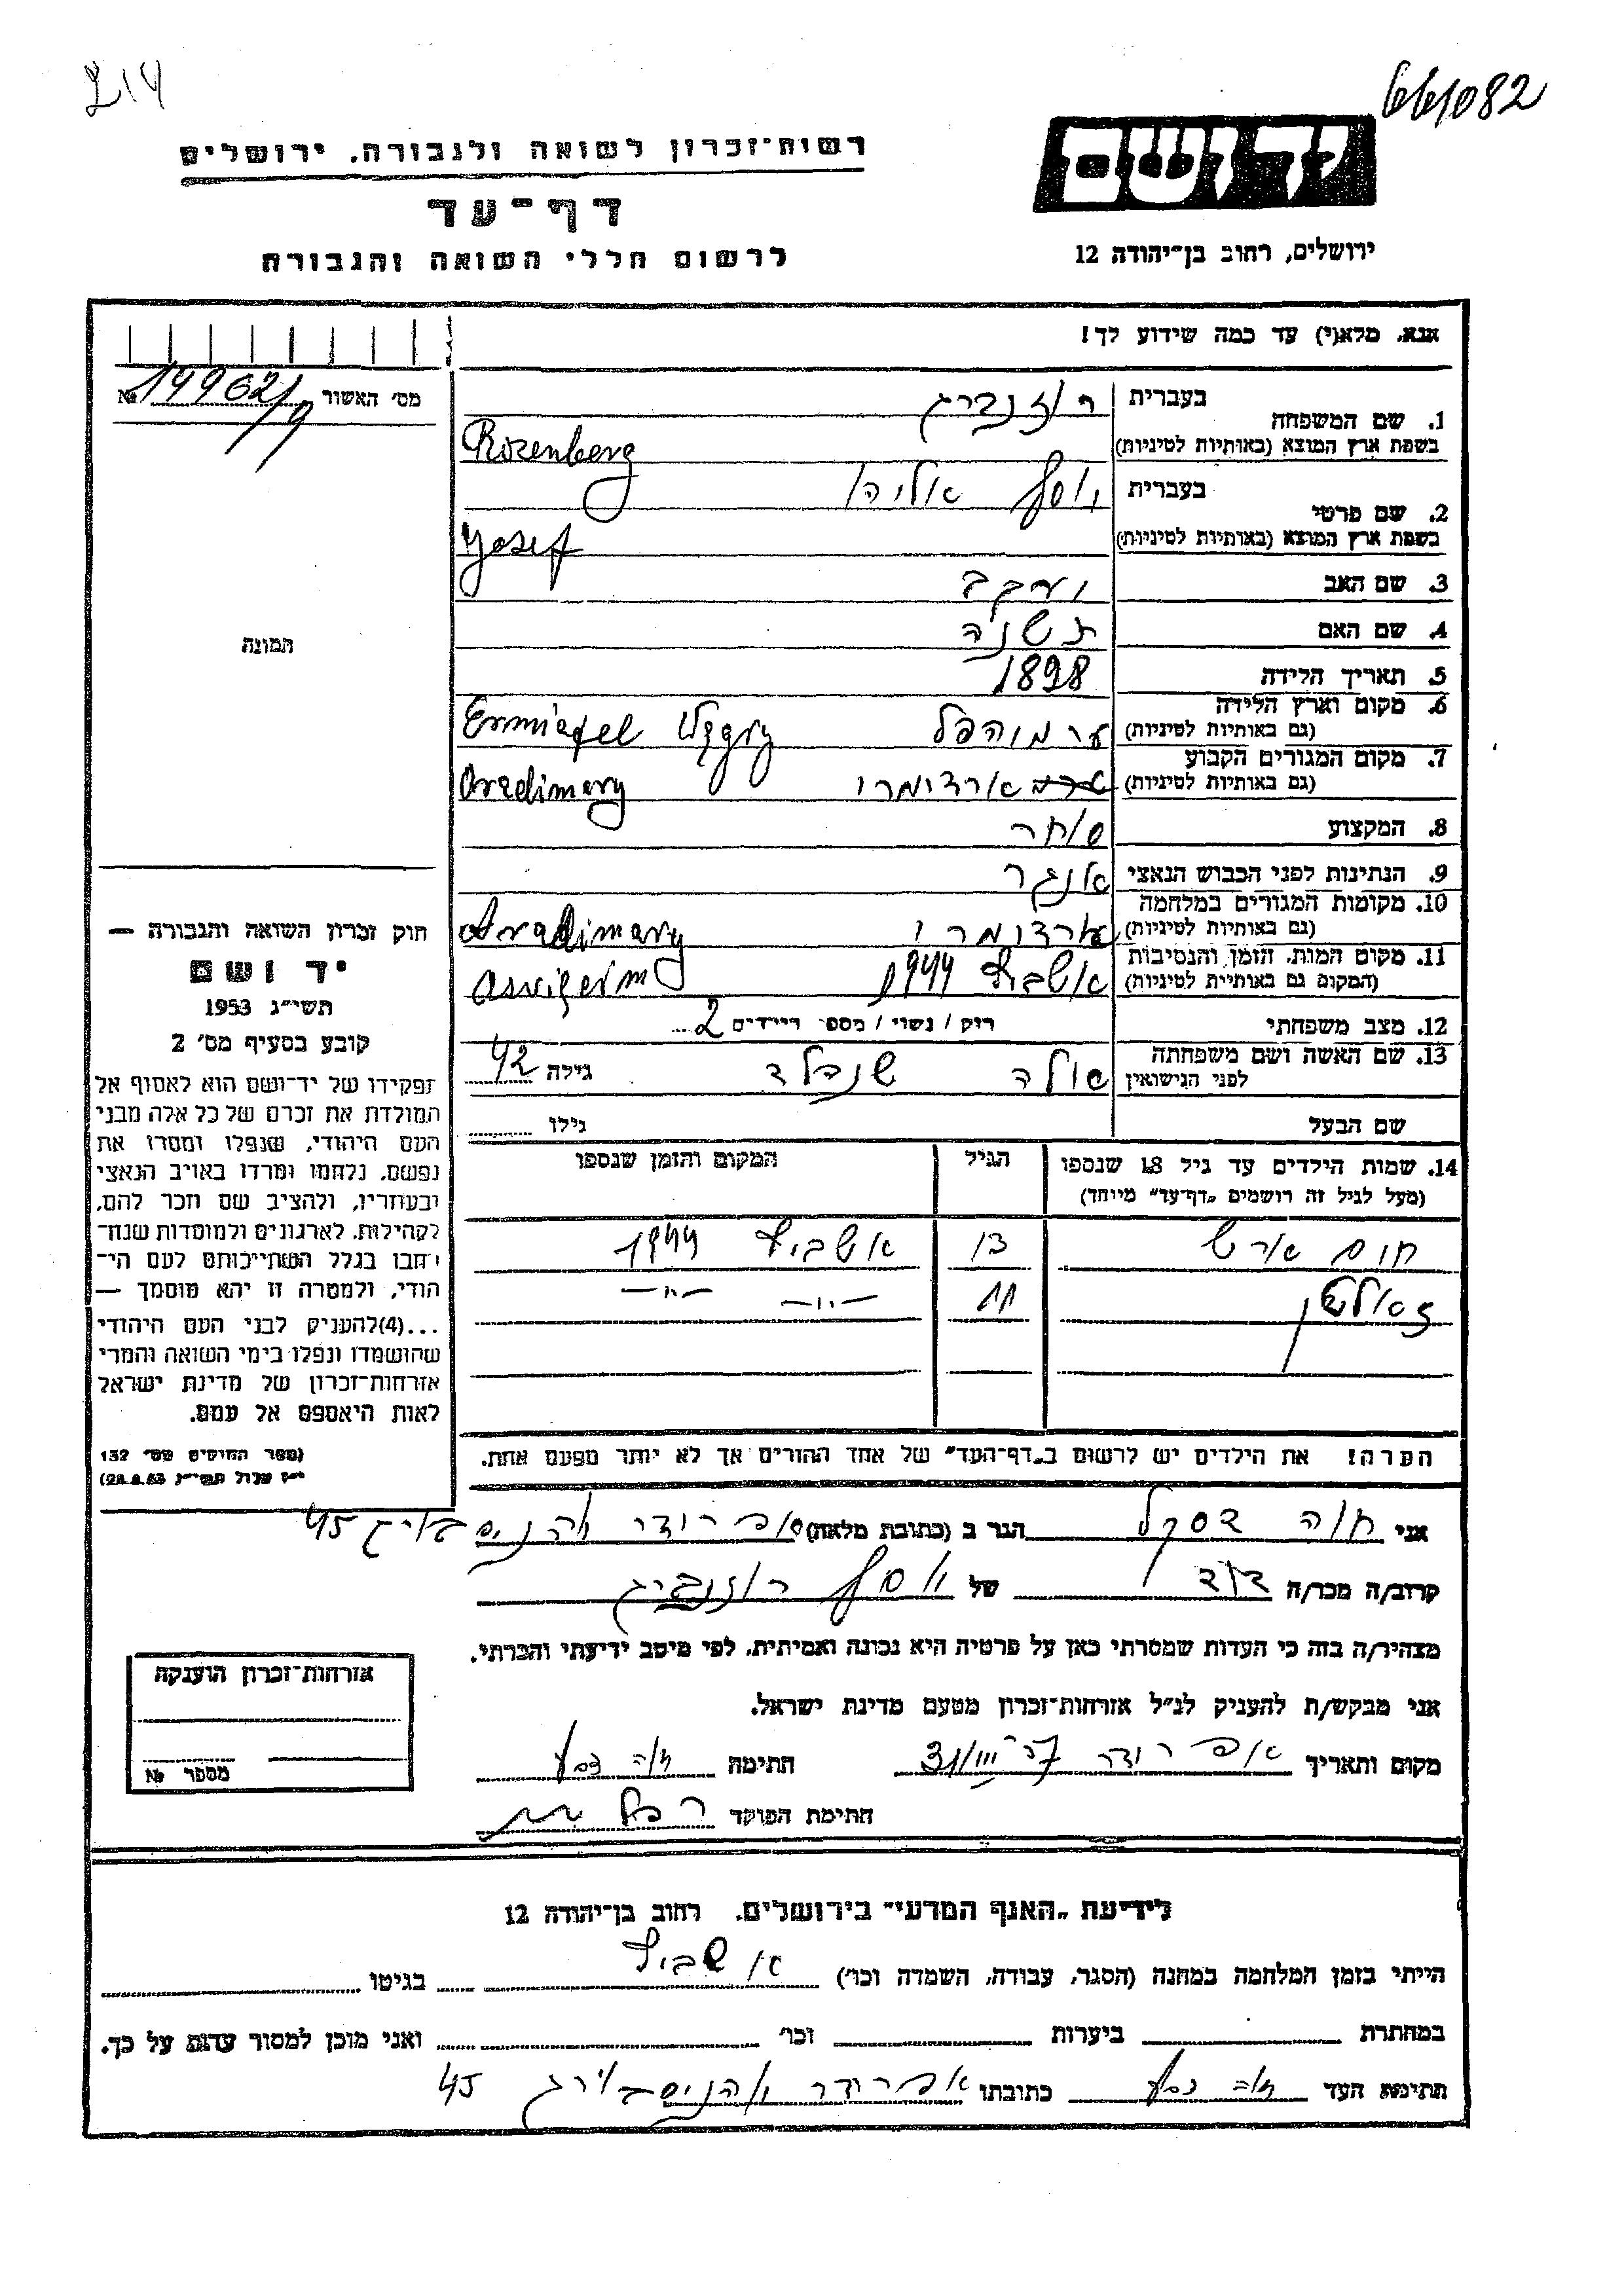 214
661082
יד ושם
רשות-זכרון לשואה ולגבורה, ירושלים
דף-עד
לרשום חללי השואה והגבורה
ירושלים, רחוב בן-יהודה 12
אנא, מלא(י) עד כמה שידוע לך!
מס' האשור 14962/9 №
1. שם המשפחה בעברית רוזנברג
בשפת ארץ המוצא (באותיות לטיניות) Rozenberg
2. שם פרטי בעברית יוסף אליהו
בשפת ארץ המוצא (באותיות לטיניות) Yosef
3. שם האב יעקב
4. שם האם
5. תאריך הלידה 1898
6. מקום וארץ הלידה
(גם באותיות לטיניות) Węgry
7. מקום המגורים הקבוע
(גם באותיות לטיניות) ארדומרי Aradimary
8. המקצוע סוחר
9. הנתינות לפני הכבוש הנאצי אונגר
10. מקומות המגורים במלחמה
(גם באותיות לטיניות) ארדומרי Aradimary
11. מקום המות, הזמן והנסיבות
(המקום גם באותיות לטיניות) אושביץ 1944
12. מצב משפחתי רוק / נשוי / מספר הילדים 2
13. שם האשה ושם משפחתה
לפני הנישואין שנבלד גילה 42
שם הבעל גילו
14. שמות הילדים עד גיל 18 שנספו
(מעל לגיל זה רושמים "דף-עד" מיוחד)
הגיל
המקום והזמן שנספו
חיים 13 אושביץ 1944
11 -"- -"-
הערה! את הילדים יש לרשום ב"דף-העד" של אחד ההורים אך לא יותר מפעם אחת.
תמונה
חוק זכרון השואה והגבורה —
יד ושם
תשי"ג 1953
קובע בסעיף מס' 2
תפקידו של יד-ושם הוא לאסוף אל
המולדת את זכרם של כל אלה מבני
העם היהודי, שנפלו ומסרו את
נפשם, נלחמו ומרדו באויב הנאצי
ובעוזריו, ולהציב שם וזכר להם,
לקהילות, לארגונים ולמוסדות שנח-
רבו בגלל השתייכותם לעם הי-
הודי, ולמטרה זו יהא מוסמך —
...(4) להעניק לבני העם היהודי
שהושמדו ונפלו בימי השואה והמרי
אזרחות-זכרון של מדינת ישראל
לאות היאספם אל עמם.
(ספר החוקים מס' 132
י"ז אלול תשי"ג 28.8.53)
אני חוה דסקל הגר ב (כתובת מלאה) 45
קרוב/ה מכר/ה דוד של יוסף רוזנברג
מצהיר/ה בזה כי העדות שמסרתי כאן על פרטיה היא נכונה ואמיתית, לפי מיטב ידיעתי והכרתי.
אני מבקש/ת להעניק לנ"ל אזרחות-זכרון מטעם מדינת ישראל.
מקום ותאריך חתימה
חתימת הפוקד
אזרחות-זכרון הוענקה
מספר №
לידיעת "האגף המדעי" בירושלים, רחוב בן-יהודה 12
הייתי בזמן המלחמה במחנה (הסגר, עבודה, השמדה וכו') אושביץ בגיטו
במחתרת ביערות וכו' ואני מוכן למסור עדות על כך.
חתימת העד כתובתו 45